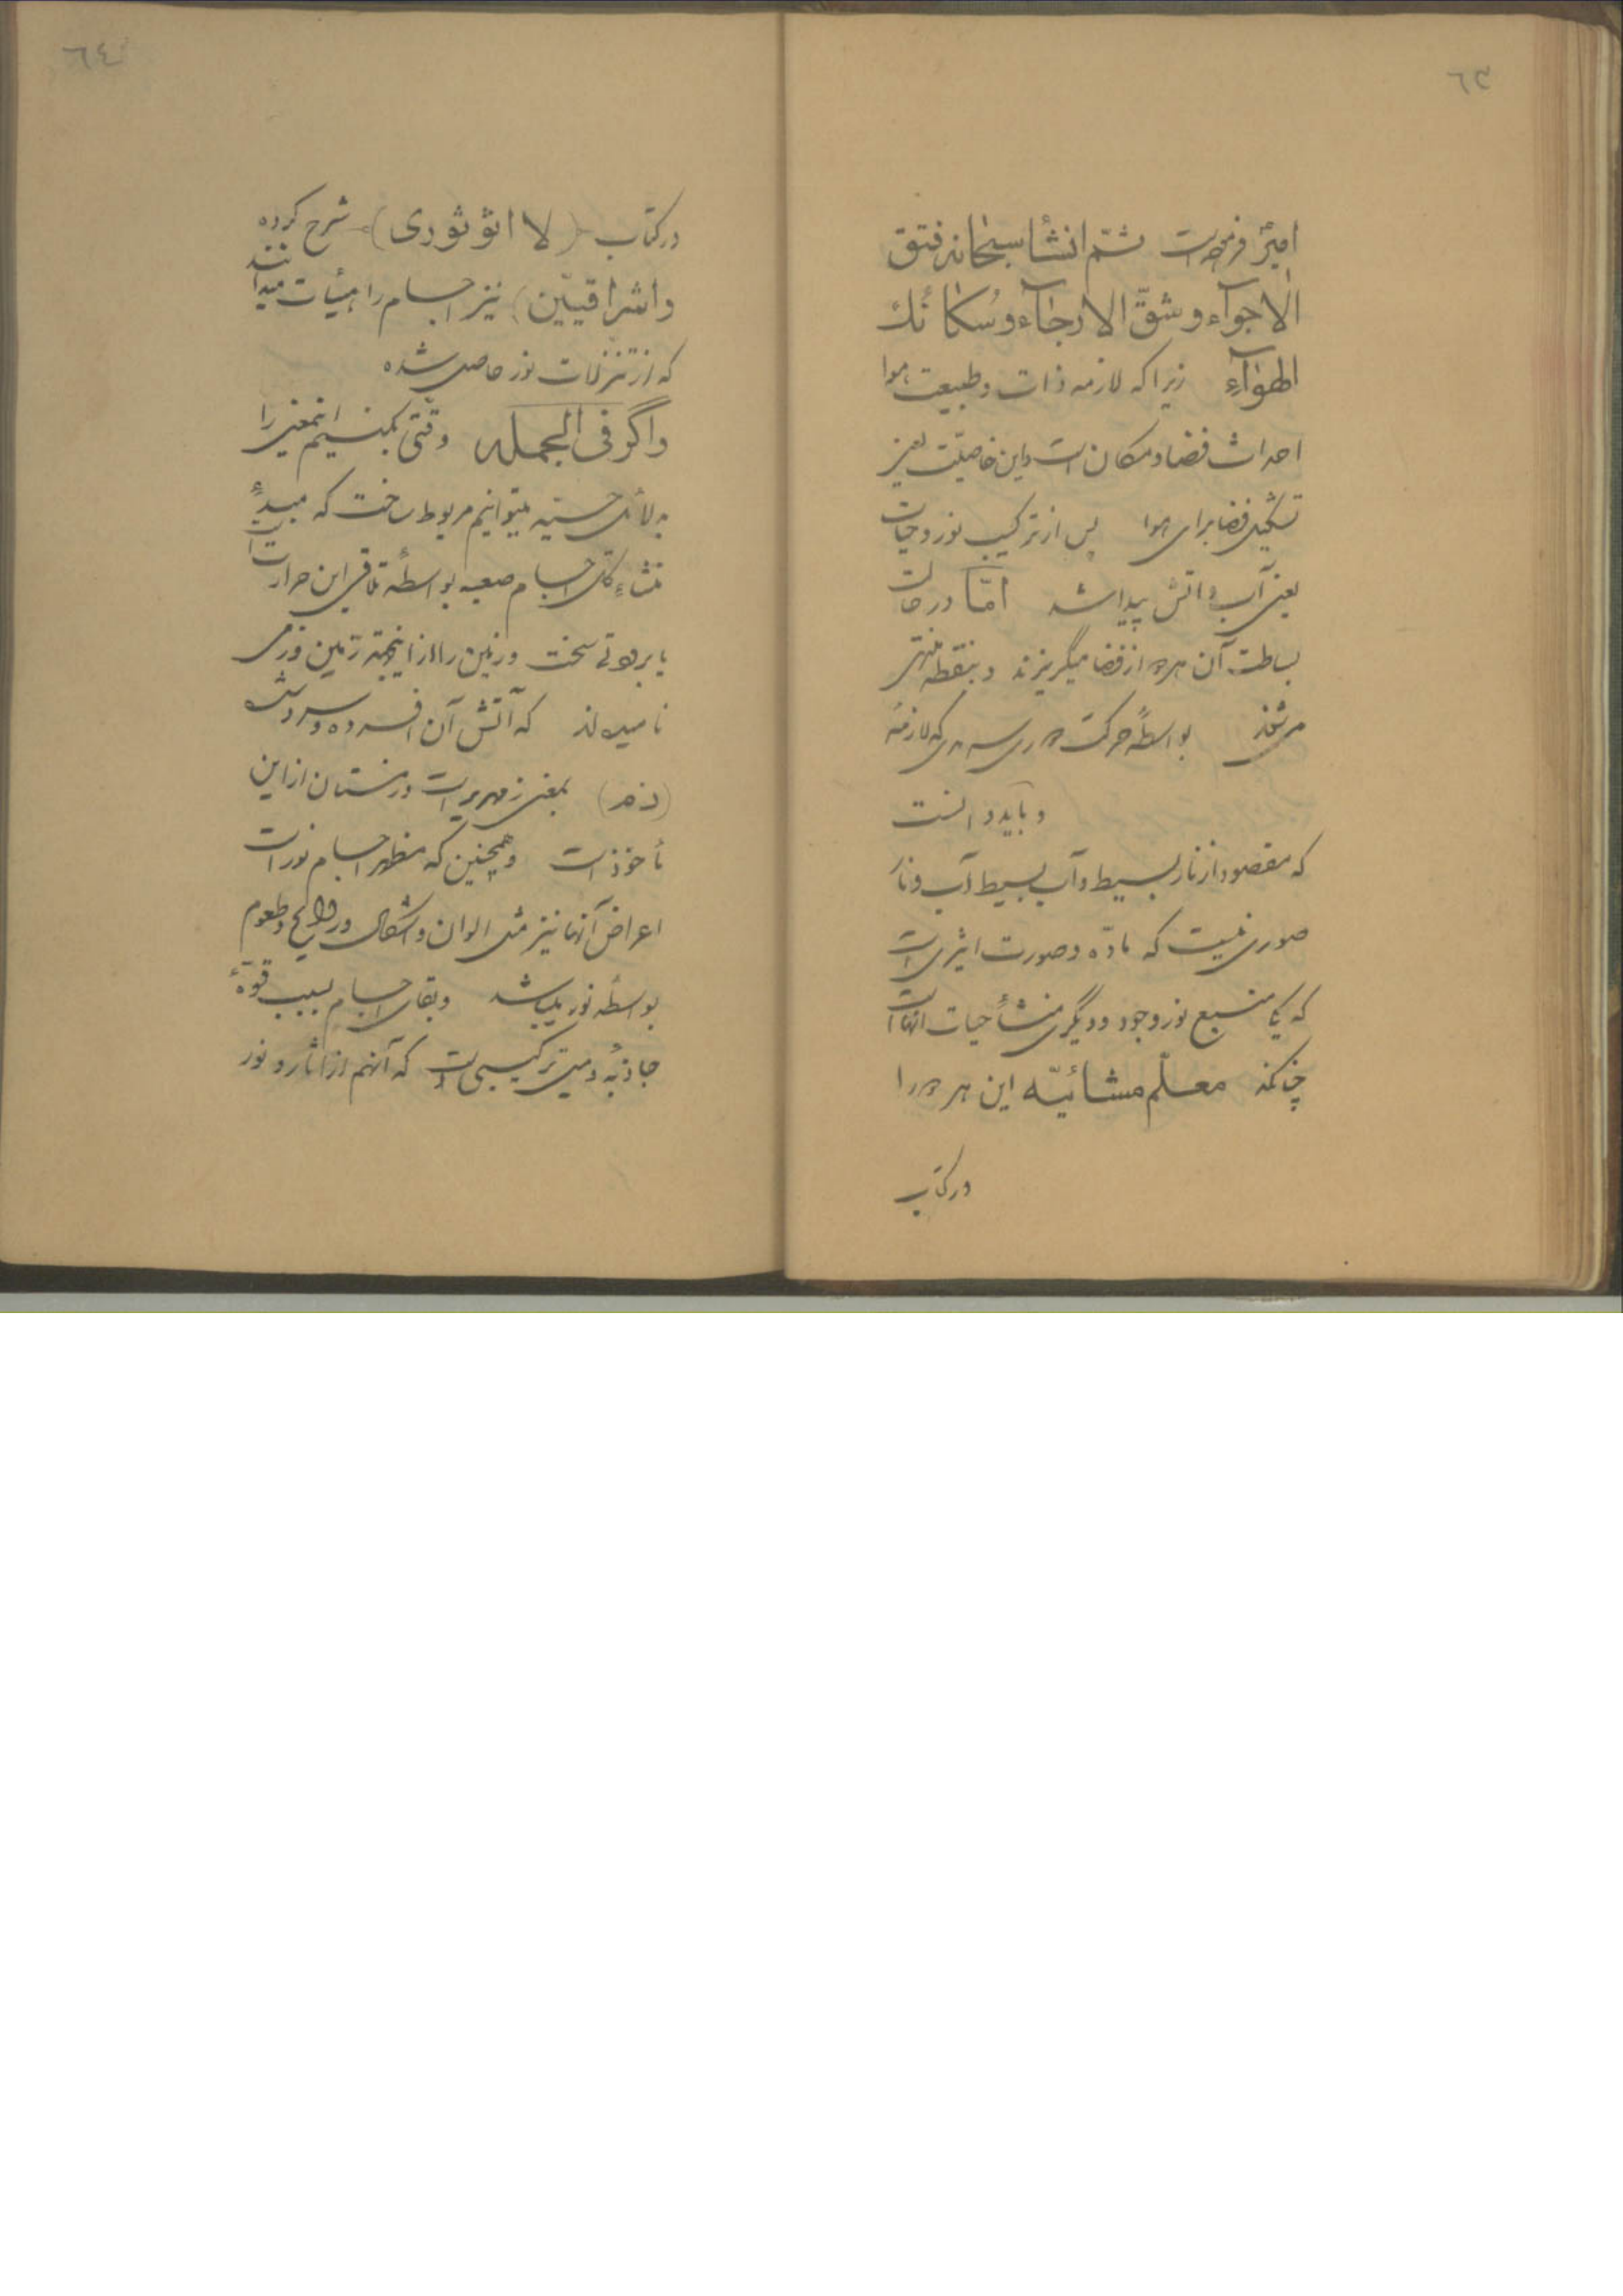 ٦٣
امیر فرموده است ثمّ انشأ سبحانه فتق
الاجوآء و شقّ الارجآء و سکائک
الهوآء زیرا که لازمه ذات و طبیعت هوا
احداث فضا و مکان است و این خاصیّت یعنی
تشکیل فضا برای هوا پس از ترکیب نور و حیات
یعنی آب و آتش پیدا شد امّا در حالت
بساطت آن هر دو از فضا میگریزند و بنقطه منتهی
میشوند بواسطهٔ حرکت دوری که لازمهٔ
و باید دانست
که مقصود از نار بسیط و آب بسیط آب و نار
صوری نیست که مادّه و صورت اثیری است
که یکی منبع نور وجود و دیگری منشأ حیات آنها است
چنانکه معلّم مشائیّه این هر دو را
در کتاب
٦٤
در کتاب (لا اثو ثوری) شرح کرده
و اشراقیّین) نیز اجسام را هیئات میدانند
که از تنزلات نور حاصل شده
و اگر فی الجمله دقّتی بکنیم اینمعنی را
به دلائل حسیّه میتوانیم مربوط ساخت که مبدء
منشاء کل اجسام صعبه بواسطهٔ تلاقی این حرارت است
با برودتی سخت و زمین را از اینجهته زمین و زمی
نامیده‌اند که آتش آن افسرده و سرد شده
(زم) بمعنی زمهریر است و زمستان از این
مأخوذ است و همچنین که مظهر اجسام نور است
اعراض آنها نیز مثل الوان و اشکال و روایح و طعوم
بواسطهٔ نور میباشد و بقای اجسام بسبب قوّهٔ
جاذبه و میل ترکیبی است که آنهم از آثار و نور